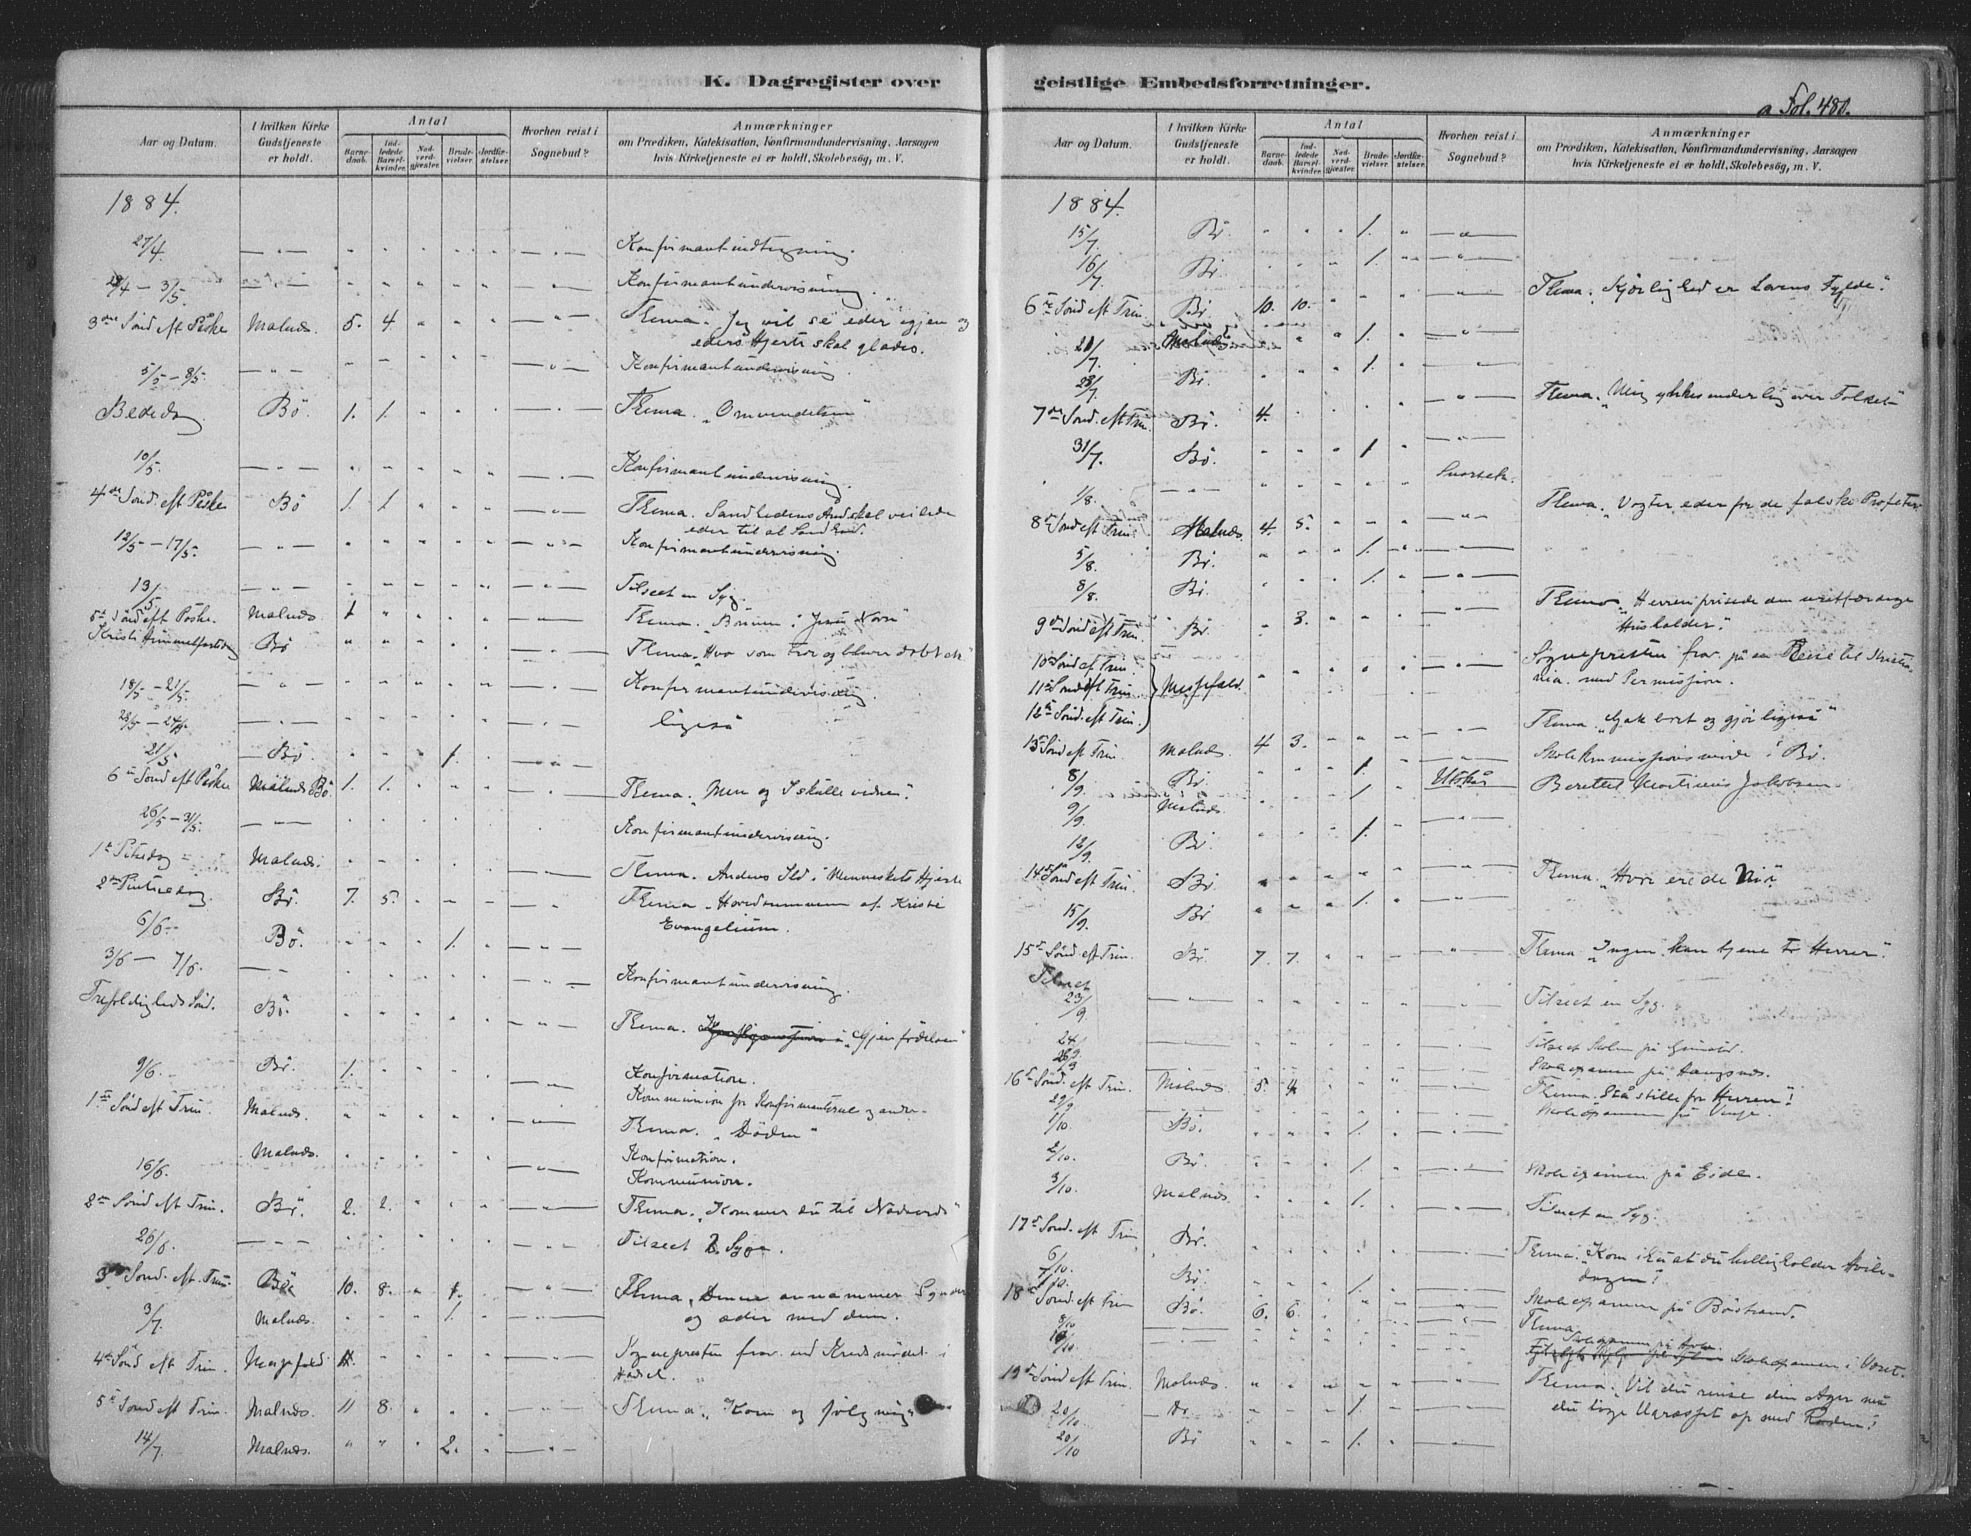 K. Dagregister over
Aar og Datum.
I hvilken Kirke Gudstjeneste er holdt.
Antal
Barnedaab.
Indledede Barselkvinder.
Nadverdgjæster.
Brudevielser.
Jordfæstelser.
Hvorhen reist i Sognebud?
Anmærkninger
om Prædiken, Katekisation, Konfirmandundervisning, Aarsagen
hvis Kirketjeneste ei er holdt, Skolebesøg, m. V.
1884.
27/4 Konfirmantindtegning.
3/5. Konfirmantundervisning.
3die Sönd eft Påske Malnæs. 5. 4. Thema. Jeg vil se eder igjen og
eders Hjerte skal glædes.
5/5 - 8/5. Konfirmantundervisning
Bededag. Bö. 1. 1. Thema. "Omvendelsen"
10/5. Konfirmantundervisning.
4de Sönd. eft Påske Bö 1. 1. Thema. Sandhedens Aand skal veilede
eder til al Sandhed.
12/5 - 17/5. Konfirmantundervisning
13/5 Tilseet en Syg.
5te Sönd eft Påske. Malnæs. 1 Thema. Bönnen i Jesu Navn
Kristi Himmelfartsdag Bö Thema "Hvo som tror og bliver döbt
18/5 - 21/5. Konfirmantundervisning
ligeså
21/5 Bö. 1.
6te Sönd eft Påske Malnæs Bö. 1. 1. Thema. "Men og I skulle vidne".
26/5 - 31/5. Konfirmantundervisning.
1ste Malnæs. Thema. Aandens Ild i Menneskets Hjerte
2den Pintsedag Bö. 7. 5. Thema. Hovedsummen af Kristi
Evangelium.
6/6. Bö. 1.
3/6 - 7/6. Konfirmantundervisning.
Trefoldigheds Sönd. Bö. Thema. "Gjenfödelsen"
9/6. Bö. 1. Konfirmation.
Kommunion for Konfirmanterne og andre.
1ste Sönd eft Trin. Malnæs. Thema. "Döden"
16/6. Malnæs. Konfirmation.
Kommunion.
2den Sönd eft Trin. Bö. 2. 2. Thema. "Kommer du til Nadverds"
26/6. Tilseet 2 Syge.
3die Sönd. eft. Trin. Bö 10. 8. 1. Thema. "Denne annammer Syndere
og æder med dem.
3/7. Malnæs. 1.
4de Sönd eft Trin. Messefald Sognepresten frav. ved Kredsmödet i
Hadsel.
5te Sönd eft Trin. Malnæs. 11 8. Thema. "Kom og fölg mig"
14/7. Malnæs. 2.
geistlige Embedsforretninger.
a Fol. 480.
Aar og Datum.
I hvilken Kirke Gudstjeneste er holdt.
Antal
Barnedaab.
Indledede Barselkvinder.
Nadverdgjæster.
Brudevielser.
Jordfæstelser.
Hvorhen reist i Sognebud?
Anmærkninger
om Prædiken, Katekisation, Konfirmandundervisning, Aarsagen
hvis Kirketjeneste ei er holdt, Skolebesøg, m. V.
1884.
15/7. Bö. 1.
16/7 Bö. 1.
6te Sönd eft Trin. Bö. 10. 10. Thema. "Kjærlighed er Lovens Fylde".
21/7. 1.
23/7. Bö. 1.
7de Sönd. eft Trin. Bö. 4. Thema. "Mig ynkes inderlig over Folket"
31/7. Bö. 1
1/8.
8de Sönd eft Trin. Malnæs. 4. 5. Thema. "Vogter eder for de falske Profeter
5/8. Bö. 1.
8/8. Bö. 1.
9de Sönd eft Trin. Bö. 3. Thema. "Herren prisede den uretfærdige
Husholder".
10de Sönd eft Trin.
11te Sönd eft Trin. Messefald.
12te Sönd. eft Trin.
Sognepresten frav. på en Reise til Kristia-
nia. med Permission.
13de Sönd eft Trin. Malnæs 4 3. Thema. "Gak bort og gjör ligeså"
8/9. Bö. 1. Skolekommissionsmöde i Bö.
9/9. Malnæs. 1. Utskår Berettet Martinus Jakobsen
12/9. Bö. 1.
14de Sönd eft Trin. Bö. Thema. "Hvor ere de Ni".
15/9. Bö 1.
15de Sönd eft Trin. Bö. 7. 7. Thema. "Ingen kan tjene to Herrer".
23/9. Tilseet en Syg.
24/9 Tilseet Skolen på
26/9 Skoleexamen på
16de Sönd. eft Trin. Malnæs 5. 4. Thema. "Stå stille for Herren"!
29/9 Skoleexamen på Vinje.
1/10. Bö. 1.
2/10. Bö. 1. Skoleexamen på Eide.
3/10. Malnæs. 1. Tilseet en Syg.
17de Sönd. eft Trin. Bö. Thema. "Kom ihu at du helligholder Hvile-
dagen"!
6/10. Bö. 1.
18de Sönd eft Trin Bö. 6. 6. Skoleexamen på Böstrand.
Thema
Skoleexamen på
Skoleexamen i
19de Sönd eft Trin. Malnæs. Thema. Vil du rense din Ager må
du toge Ugræsset op med Roden!
20/10. Bö 1.
20/10 Bö 1.